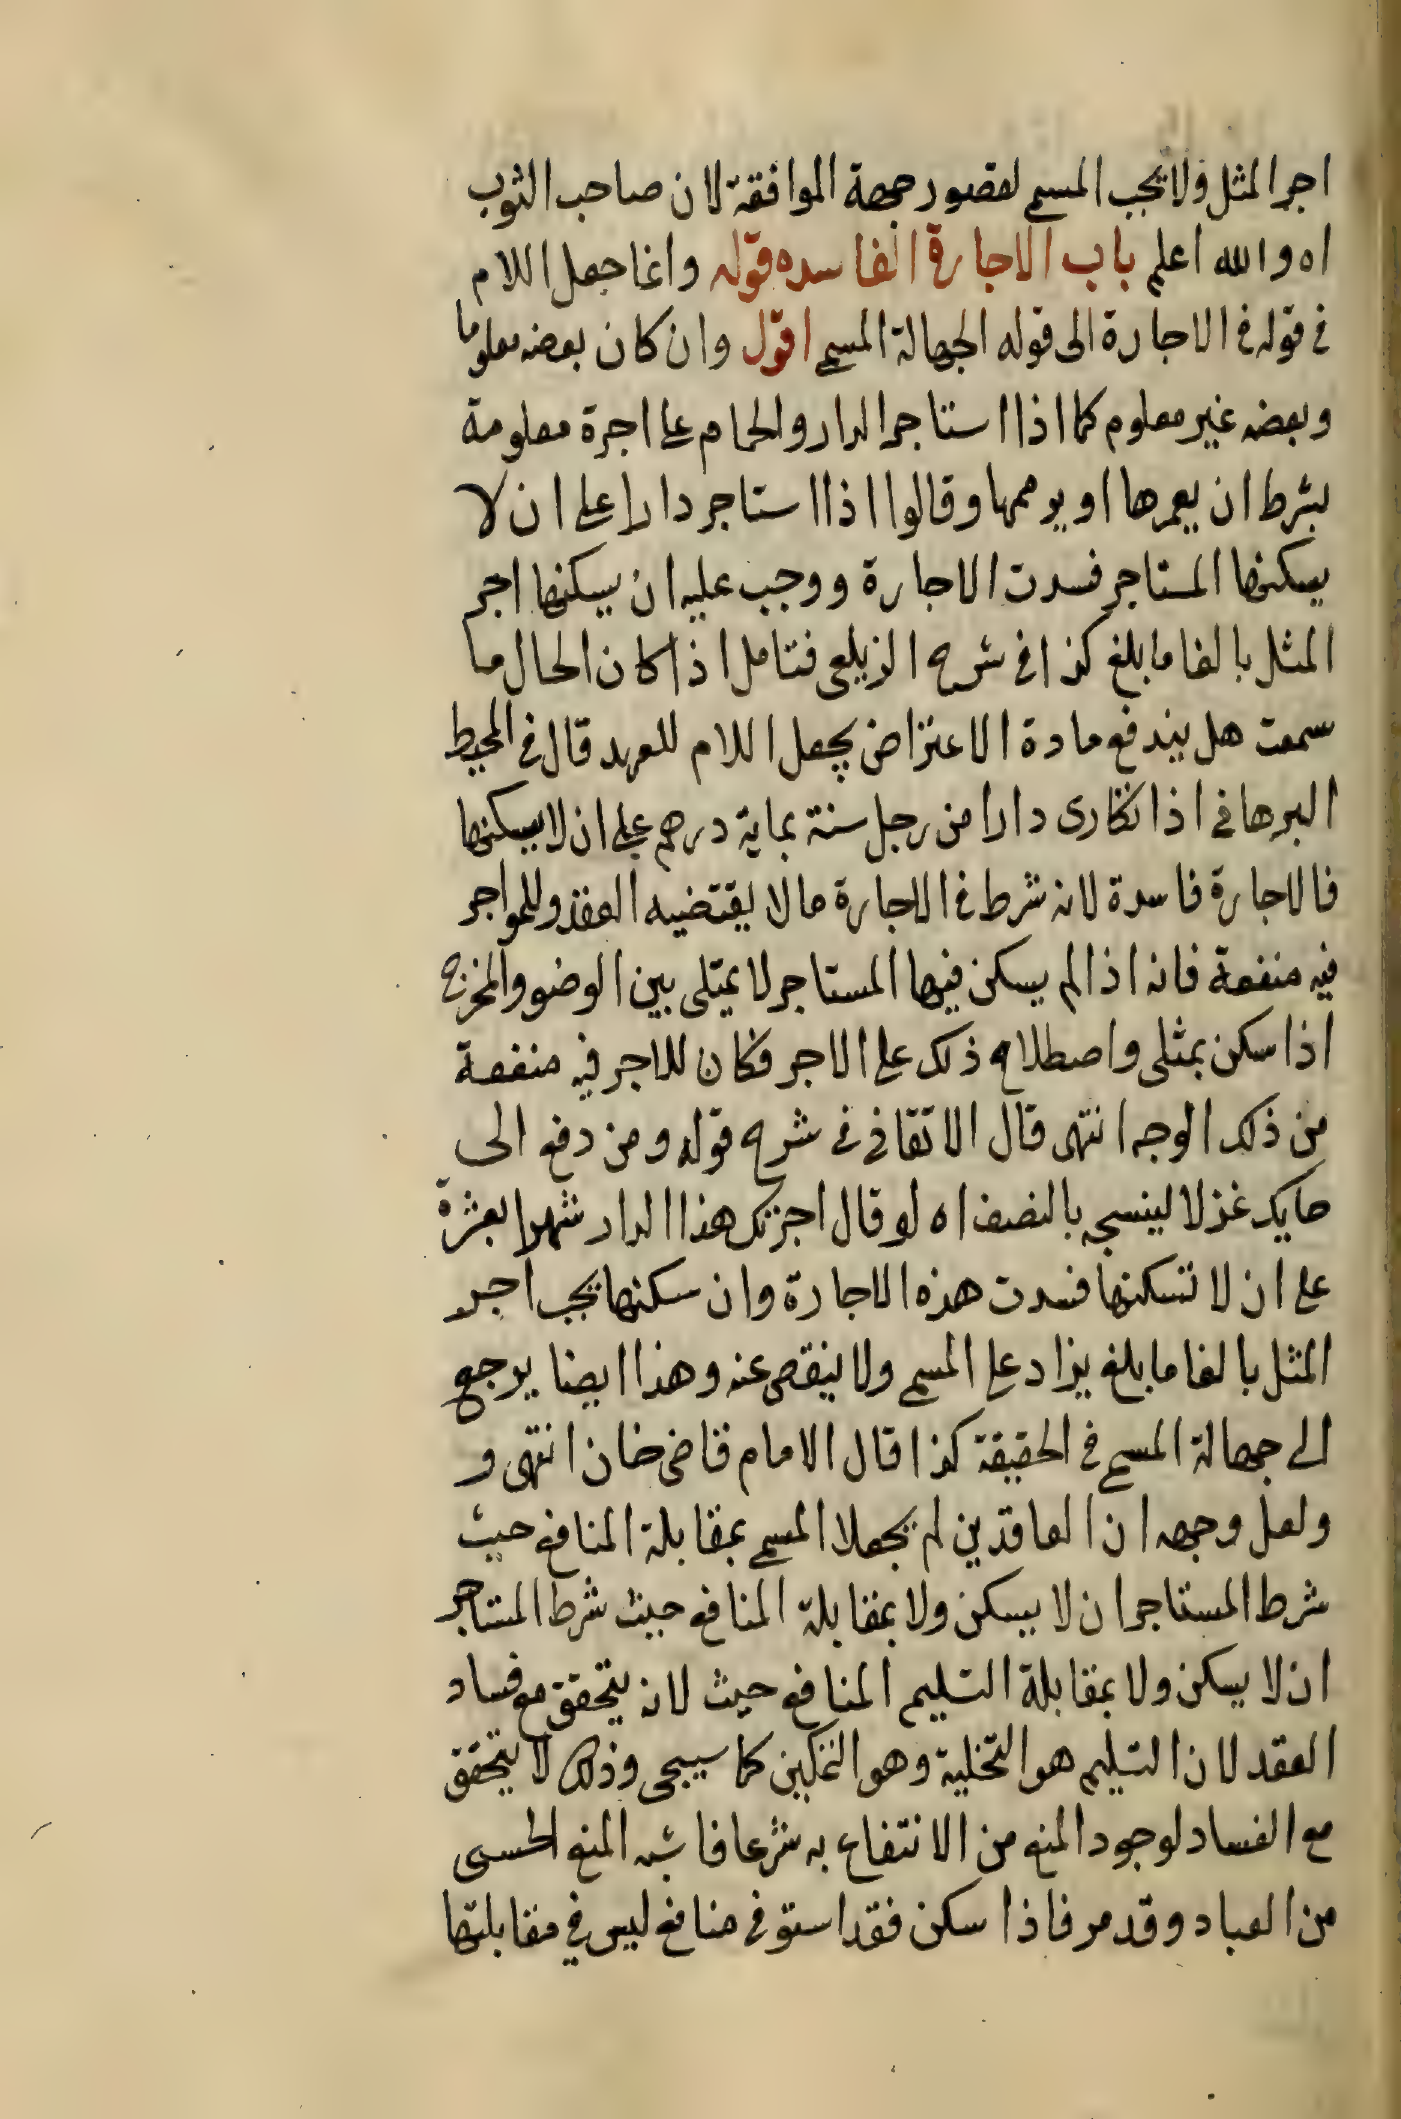 اجر المثل ولا يجب المسمى لقصور جهة الموافقة لان صاحب الثوب
اه والله اعلم باب الاجارة الفاسده قوله وانما جعل اللام
فى قوله فى الاجارة الى قوله الجهالة المسمى اقول وان كان بعضه معلوما
وبعضه غير معلوم كما اذا استاجر الدار والحمام على اجرة معلومة
بشرط ان يعمرها او يرممها وقالوا اذا استاجر دارا على ان لا
يسكنها المستاجر فسدت الاجارة ووجب عليه ان يسكنها اجر
المثل بالغا ما بلغ كذا فى شرح الزيلعى فتامل اذا كان الحال ما
سمعت هل يندفع مادة الاعتراض بجعل اللام للعهد قال فى المحيط
البرهانى اذا تكارى دارا من رجل سنة بماية درهم على ان لا يسكنها
فالاجارة فاسدة لانه شرط فى الاجارة ما لا يقتضيه العقد وللمواجر
فيه منفعة فانه اذا لم يسكن فيها المستاجر لا يمتلى بين الوضو والمخرج
اذا سكن بمثلى واصطلاح ذلك على الاجر فكان للاجر فيه منفعة
من ذلك الوجه انتهى قال الاتقانى فى شرح قوله ومن دفع الى
حايك غزلا لينسجه بالنصف اه لو قال اجرتك هذا الدار شهرا بعشرة
على ان لا تسكنها فسدت هذه الاجارة وان سكنها يجب اجر
المثل بالغا ما بلغ يزاد على المسمى ولا ينقص عنه وهذا ايضا يرجع
الى جهالة المسمى فى الحقيقة كذا قال الامام قاضى خان انتهى و
ولعل وجهه ان العاقدين لم يجعلا المسمى بمقابلة المنافع حيث
شرط المستاجر ان لا يسكن ولا بمقابلة المنافع حيث شرط المستاجر
ان لا يسكن ولا بمقابلة التسليم المنافع حيث لانه يتحقق مع فساد
العقد لان التسليم هو التخلية وهو التمكين كما سيجى وذلك لا يتحقق
مع الفساد لوجود المنع من الانتفاع به شرعا فاشبه المنع الحسى
من العباد وقد مر فاذا سكن فقد استوفى منافع ليس فى مقابلتها